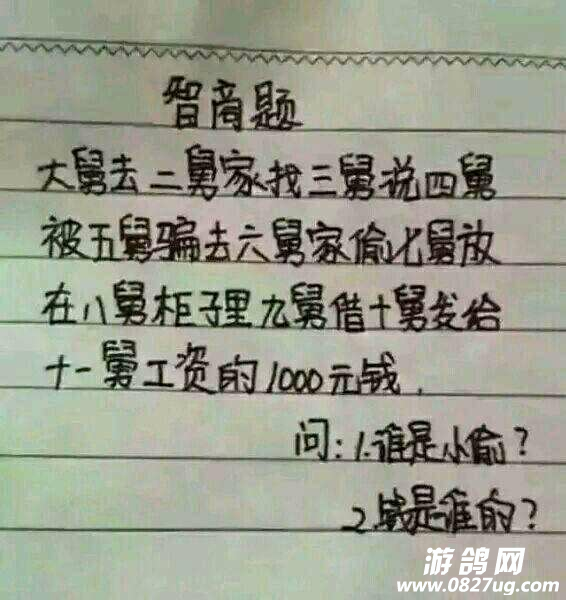 智商题
大舅去二舅家找三舅说四舅
被五舅骗去六舅家偷七舅放
在八舅柜子里九舅借十舅发给
十一舅工资的1000元钱.
问:1.谁是小偷?
2.钱是谁的?
游鸽网
www.0827ug.com